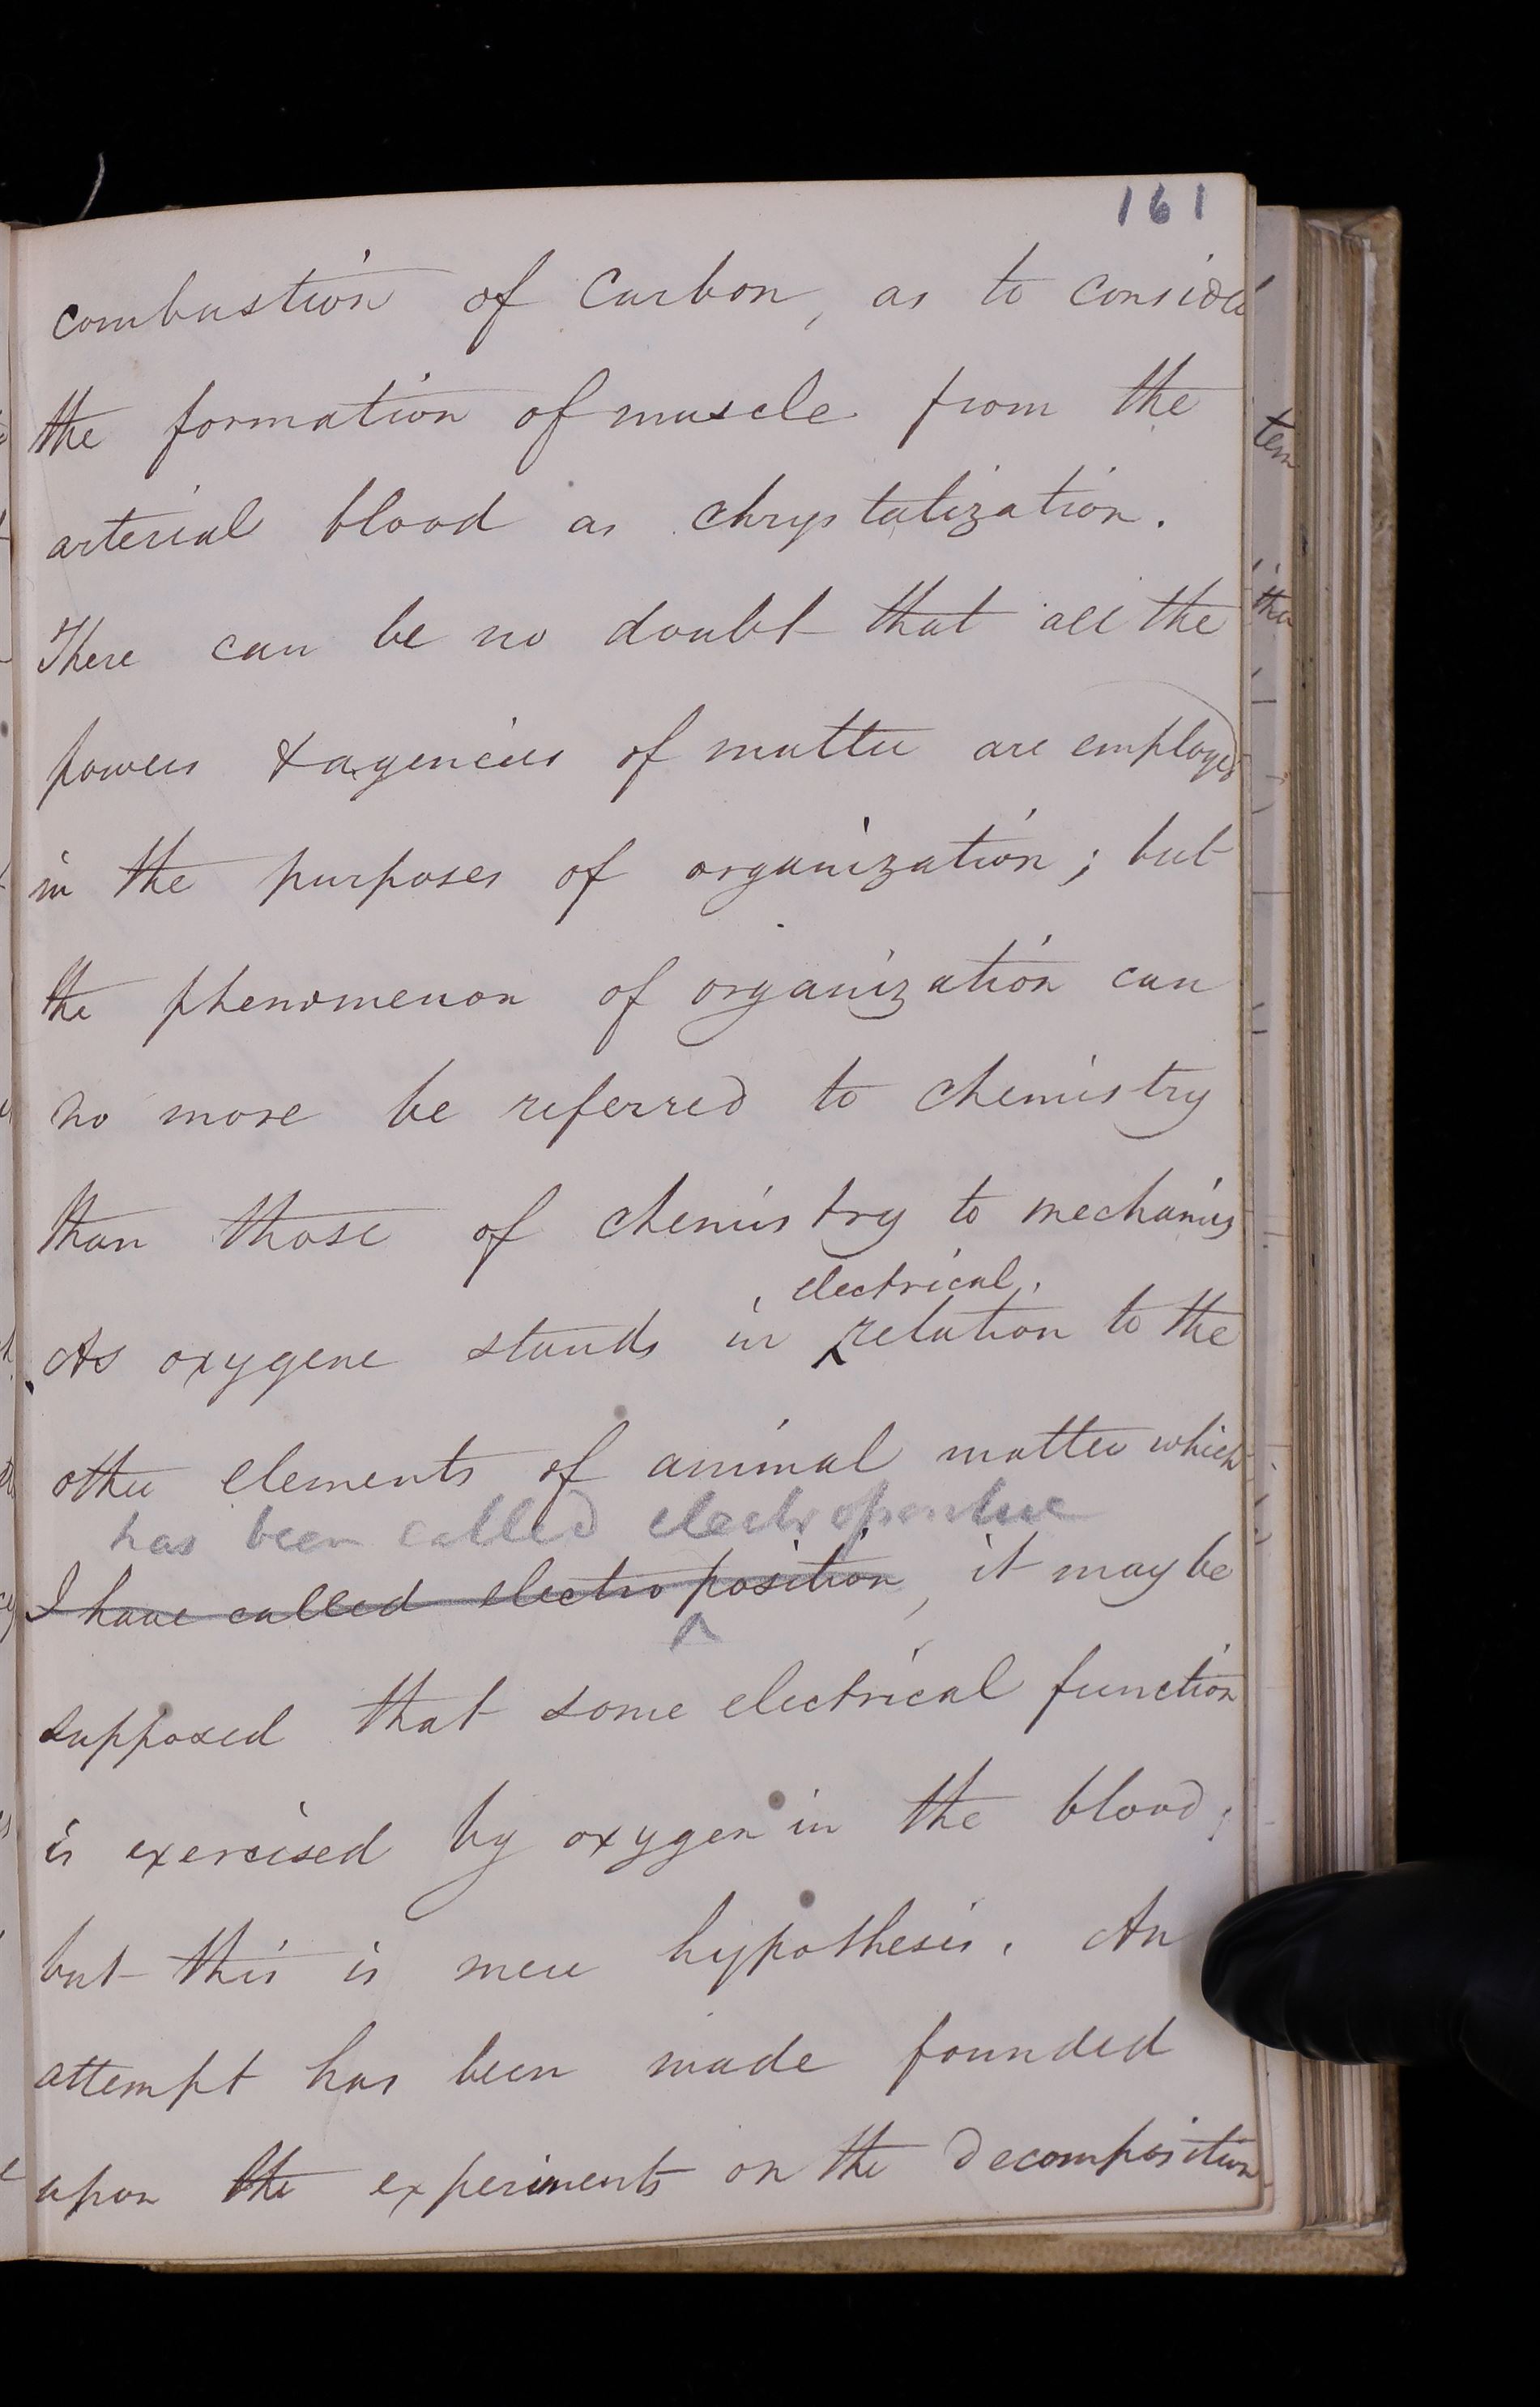 161
combustion of Carbon, as to consider
the formation of muscle from the
arterial blood as chrystalization.
There can be no doubt that all the
powers & agencies of matter are employed
in the purposes of organization; but
the phenomenon of organization can
no more be referred to chemistry
than those of chemistry to mechanics
electrical
As oxygene stands in relation to the
other elements of animal matter which
has been called electropositive
I have called electro position, it may be
supposed that some electrical function
is exercised by oxygen in the blood;
but this is mere hypothesis. An
attempt has been made founded
upon the experiments on the decomposition